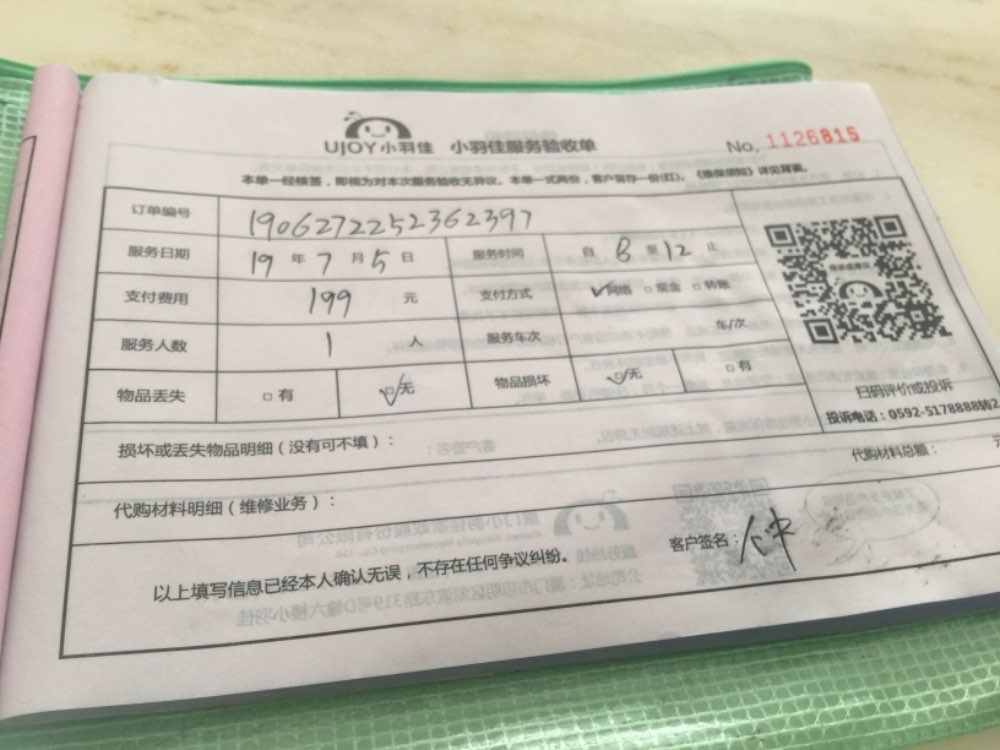 UJOY小羽佳 小羽佳服务验收单 No. 1126815
本单一经核签，即视为对本次服务验收无异议。本单一式两份，客户留存一份(红)。《维保须知》详见背面。
订单编号 1906272252362397
服务日期 19 年 7 月 5 日 服务时间 自 8 至 12 止
支付费用 199 元 支付方式 ✓网络 □ 现金 □ 转账
服务人数 1 人 服务车次 车/次
物品丢失 □ 有 ☑ 无 物品损坏 ☑ 无 □ 有
扫码评价或投诉
投诉电话：0592-5178888转2
损坏或丢失物品明细（没有可不填）：
代购材料总额： 元
代购材料明细（维修业务）：
以上填写信息已经本人确认无误，不存在任何争议纠纷。 客户签名：